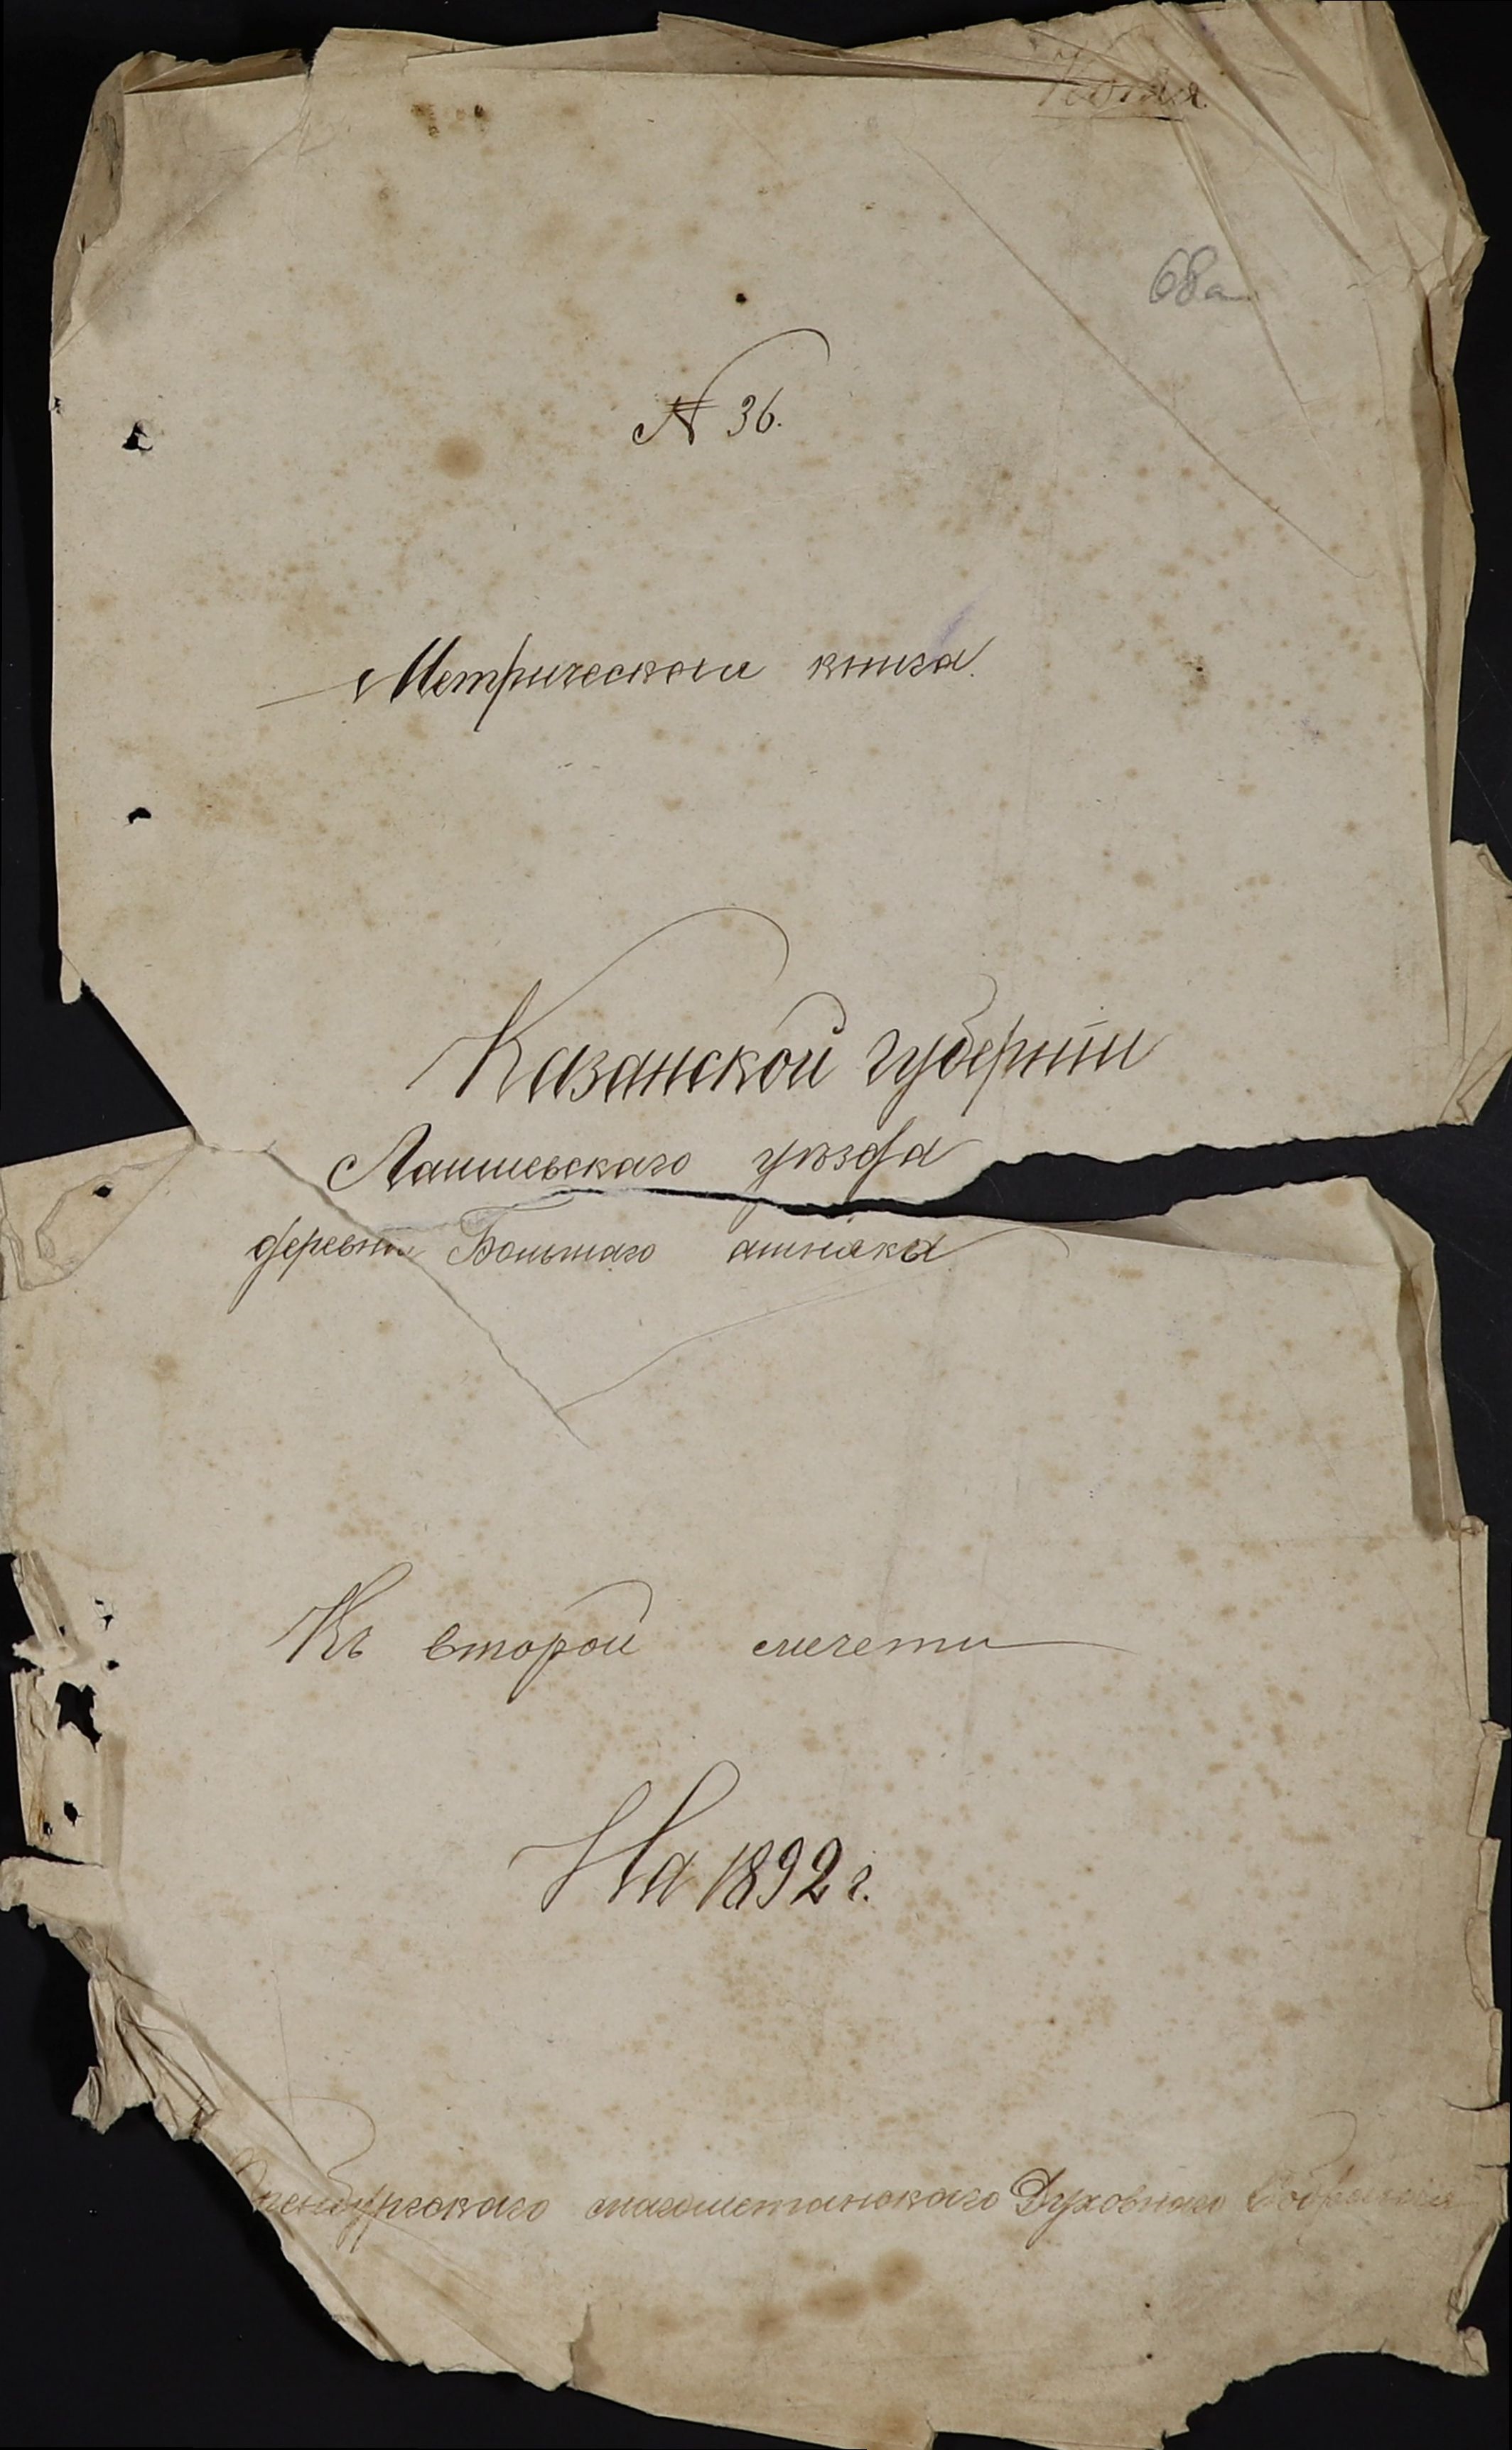 Копия.
68а
№ 36.
Метрическая книга.
Казанской губернии
Лаишевскаго уѣзда
деревни Большаго атняка
Къ второй мечети
На 1892 г.
Оренбургскаго магометанскаго Духовнаго Собрания